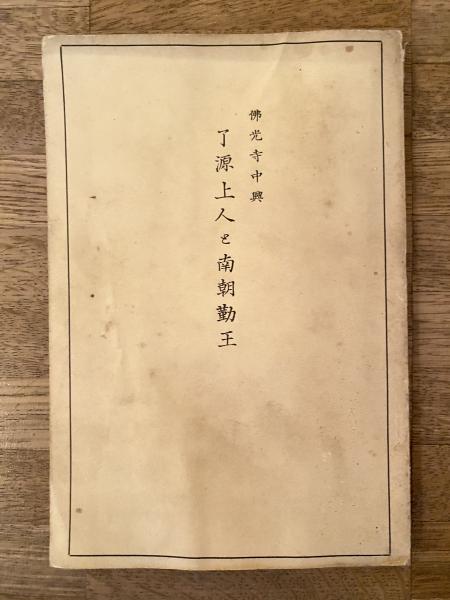 佛光寺中興
了源上人と南朝勤王